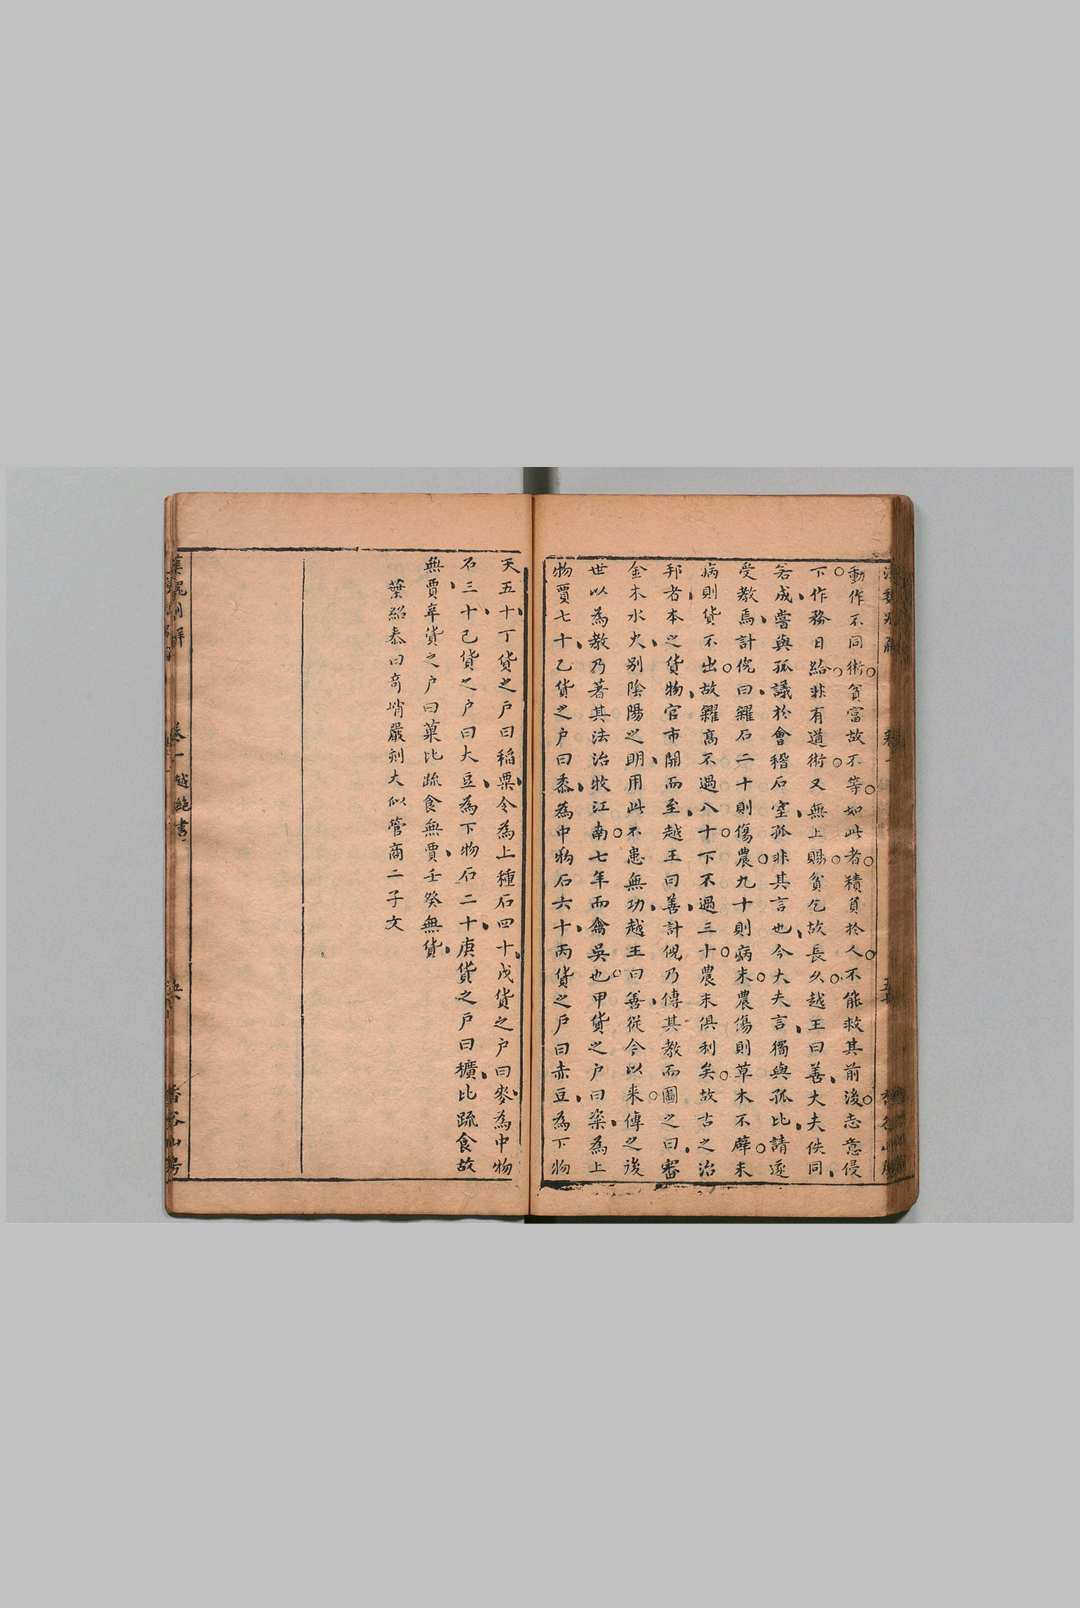 動作不同術貧富故不等如此者積負於人不能救其前後志意侵
下作務日給非有道術又無上賜貧乞故長久越王曰善大夫佚同
若成嘗與孤議於會稽石室孤非其言也今大夫言獨與孤比請遂
受教焉計倪曰糴石二十則傷農九十則病末農傷則草木不辟末
病則貨不出故糴高不過八十下不過三十農末俱利矣故古之治
邦者本之貨物官市開而至越王曰善計倪乃傳其教而圖之曰審
金木水火別陰陽之明用此不患無功越王曰善從今以來傳之後
世以為教乃著其法治牧江南七年而禽吳也甲貨之户曰粢為上
物賈七十乙貨之户曰黍為中物石六十丙貨之户曰赤豆為下物
天五十丁貨之户曰稻粟令為上種石四十戊貨之户曰麥為中物
石三十己貨之户曰大豆為下物石二十庚貨之户曰穬比疏食故
無賈辛貨之户曰菓比疏食無賈壬癸無貨
葉紹泰曰奇峭嚴刻大似管商二子文
卷一 越絕書